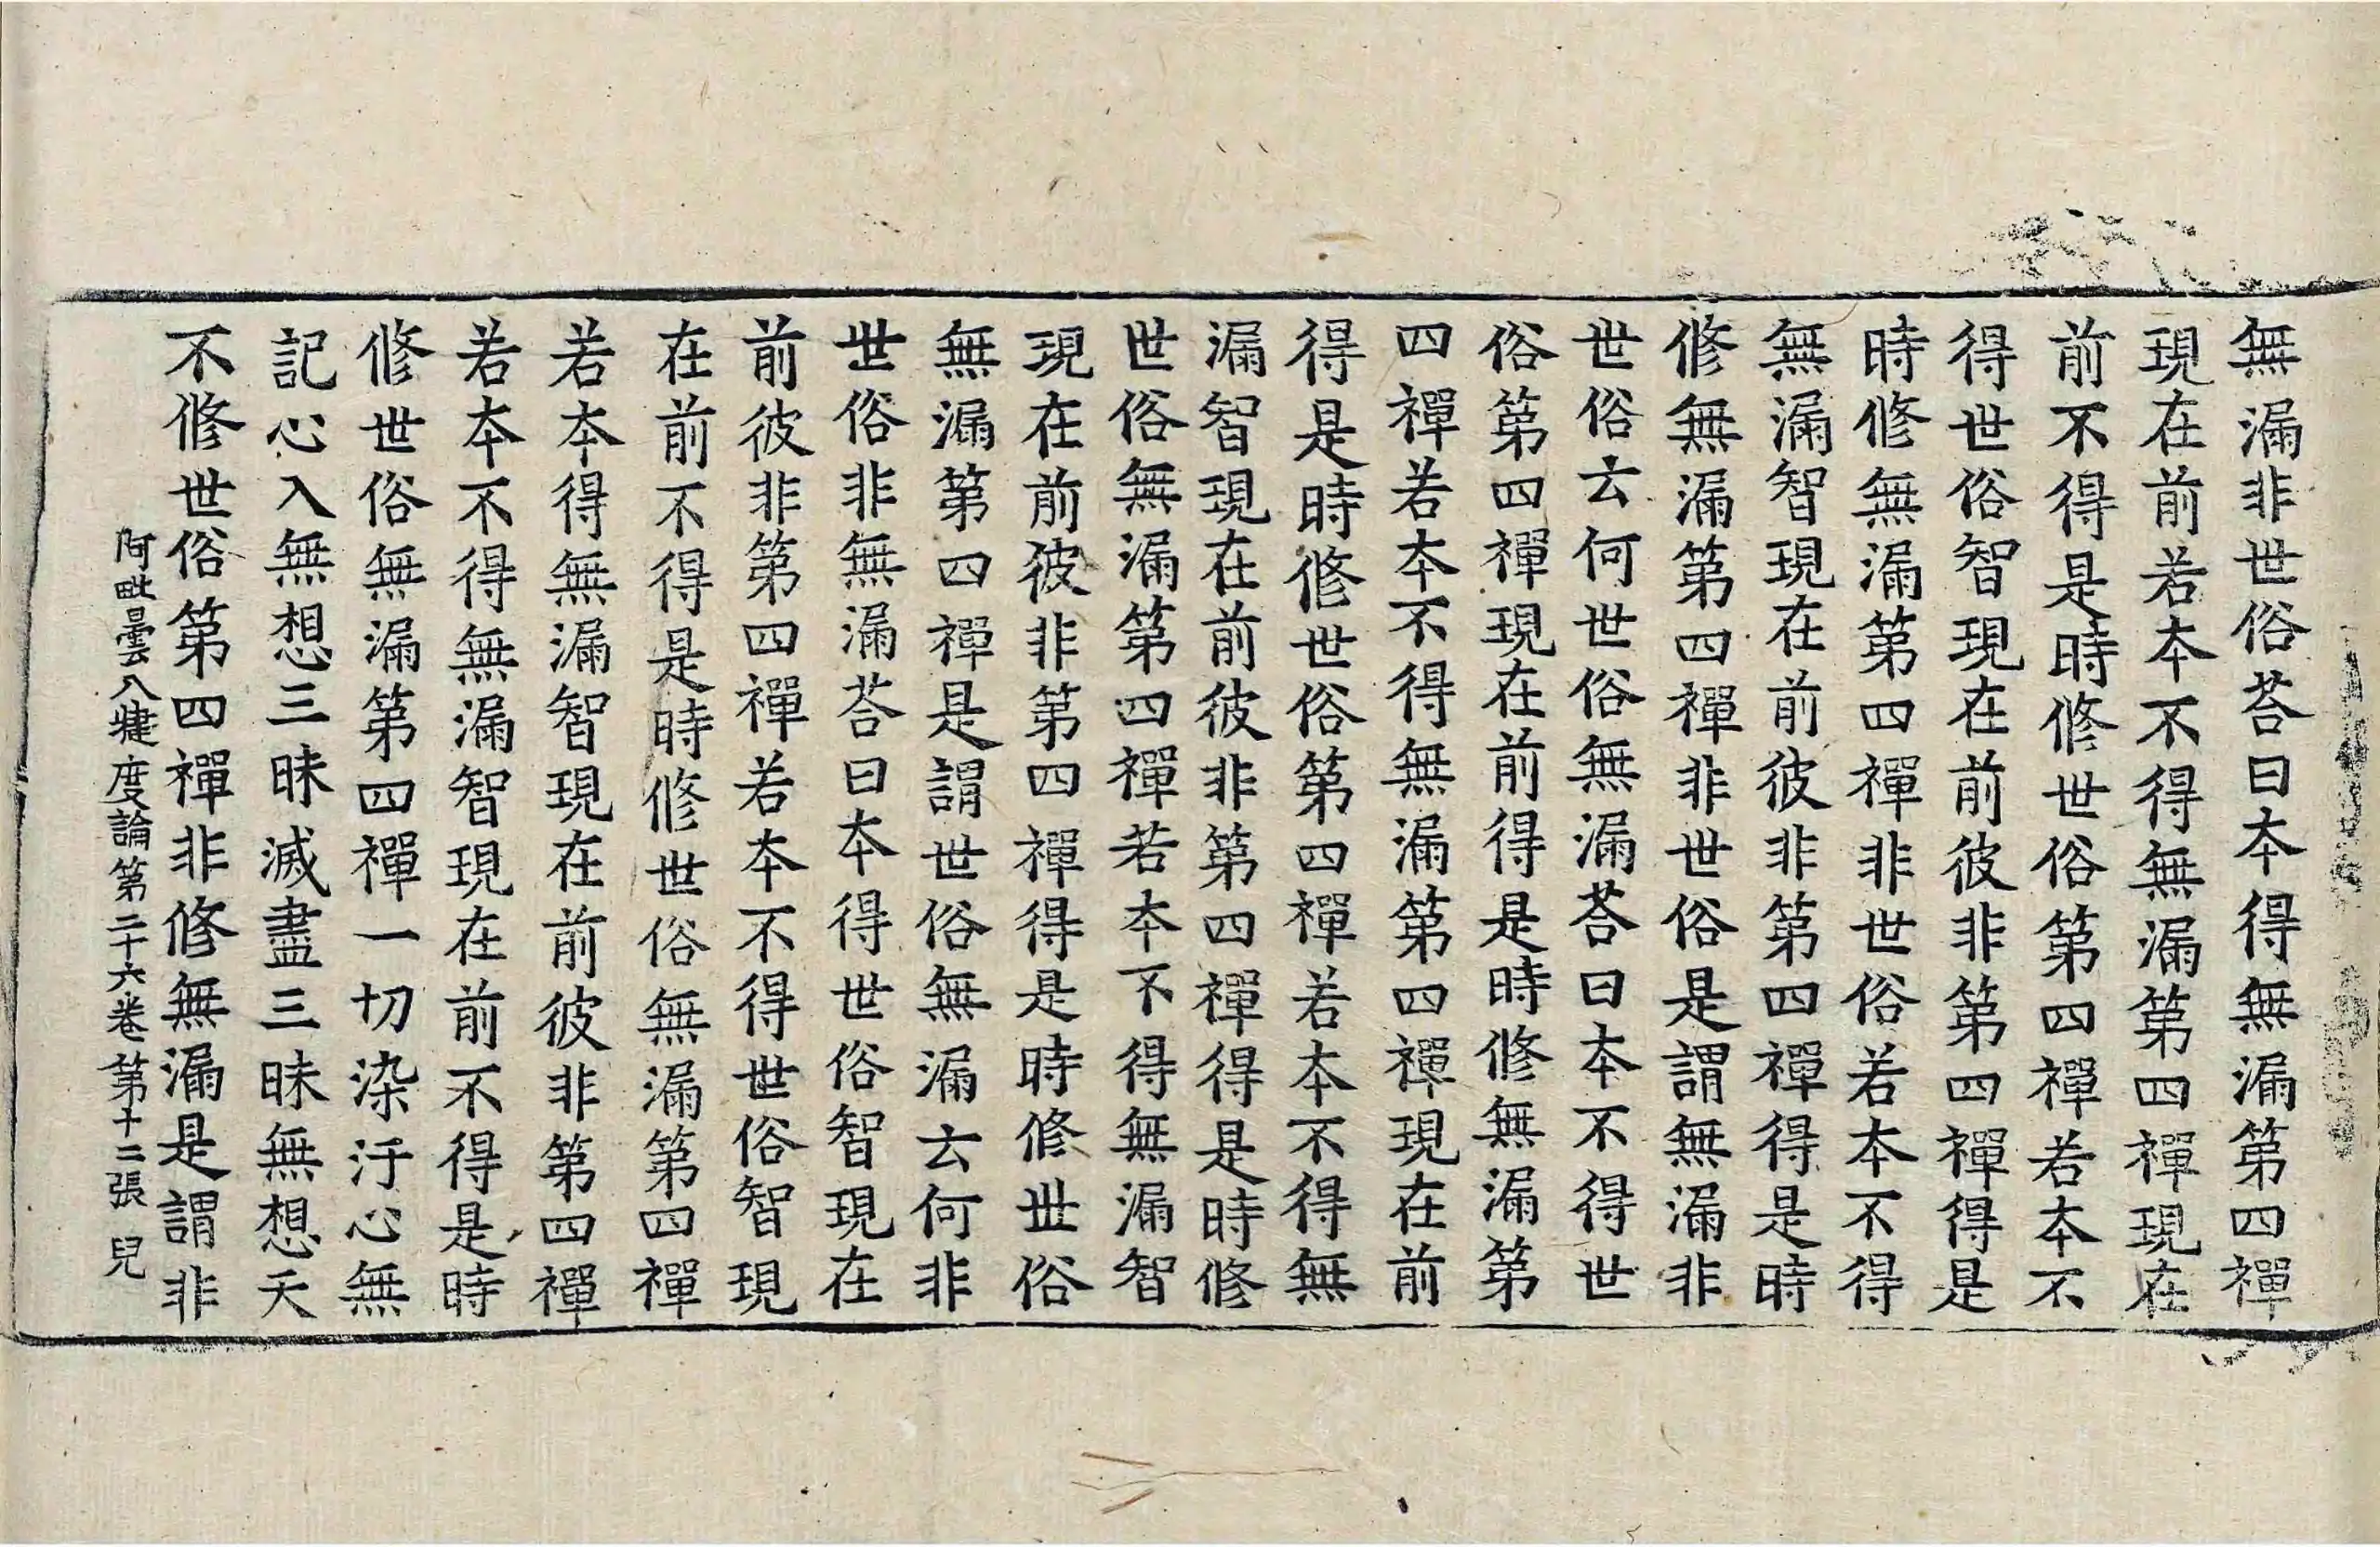 無漏非世俗荅曰本得無漏第四禪
現在前若本不得無漏第四禪現在
前不得是時修世俗第四禪若本不
得世俗智現在前彼非第四禪得是
時修無漏第四禪非世俗若本不得
無漏智現在前彼非第四禪得是時
修無漏第四禪非世俗是謂無漏非
世俗云何世俗無漏荅曰本不得世
俗第四禪現在前得是時修無漏第
四禪若本不得無漏第四禪現在前
得是時修世俗第四禪若本不得無
漏智現在前彼非第四禪得是時修
世俗無漏第四禪若本不得無漏智
現在前彼非第四禪得是時修世俗
無漏第四禪是謂世俗無漏云何非
世俗非無漏荅曰本得世俗智現在
前彼非第四禪若本不得世俗智現
在前不得是時修世俗無漏第四禪
若本得無漏智現在前彼非第四禪
若本不得無漏智現在前不得是時
修世俗無漏第四禪一切染汙心無
記心入無想三昧滅盡三昧無想天
不修世俗第四禪非修無漏是謂非
阿毗曇八犍度論第二十六卷第十二張兒